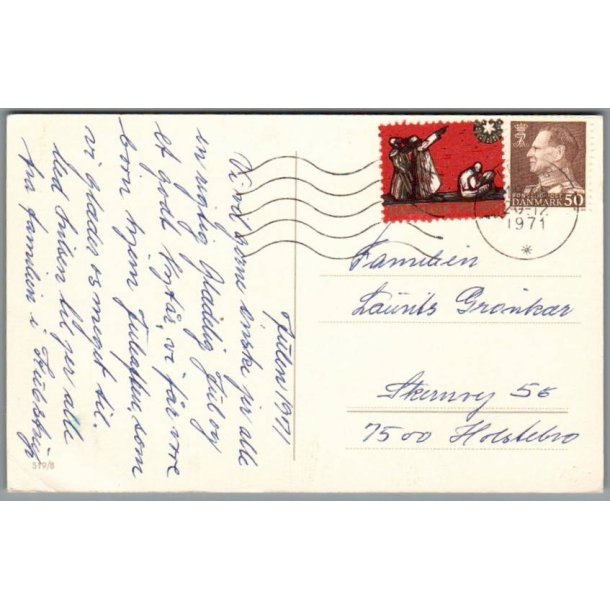 Julen 1971
Vi vil gerne ønske jer alle
en rigtig Glædelig Jul og
et godt Nytår, vi får vore
børn hjem Juleaften, som
vi glæder os meget til.
Med hilsen til jer alle
fra familien i
519/8
DANMARK 50
1971
Familien
Laurits Grønkær
Skernvej 56
7500 Holstebro